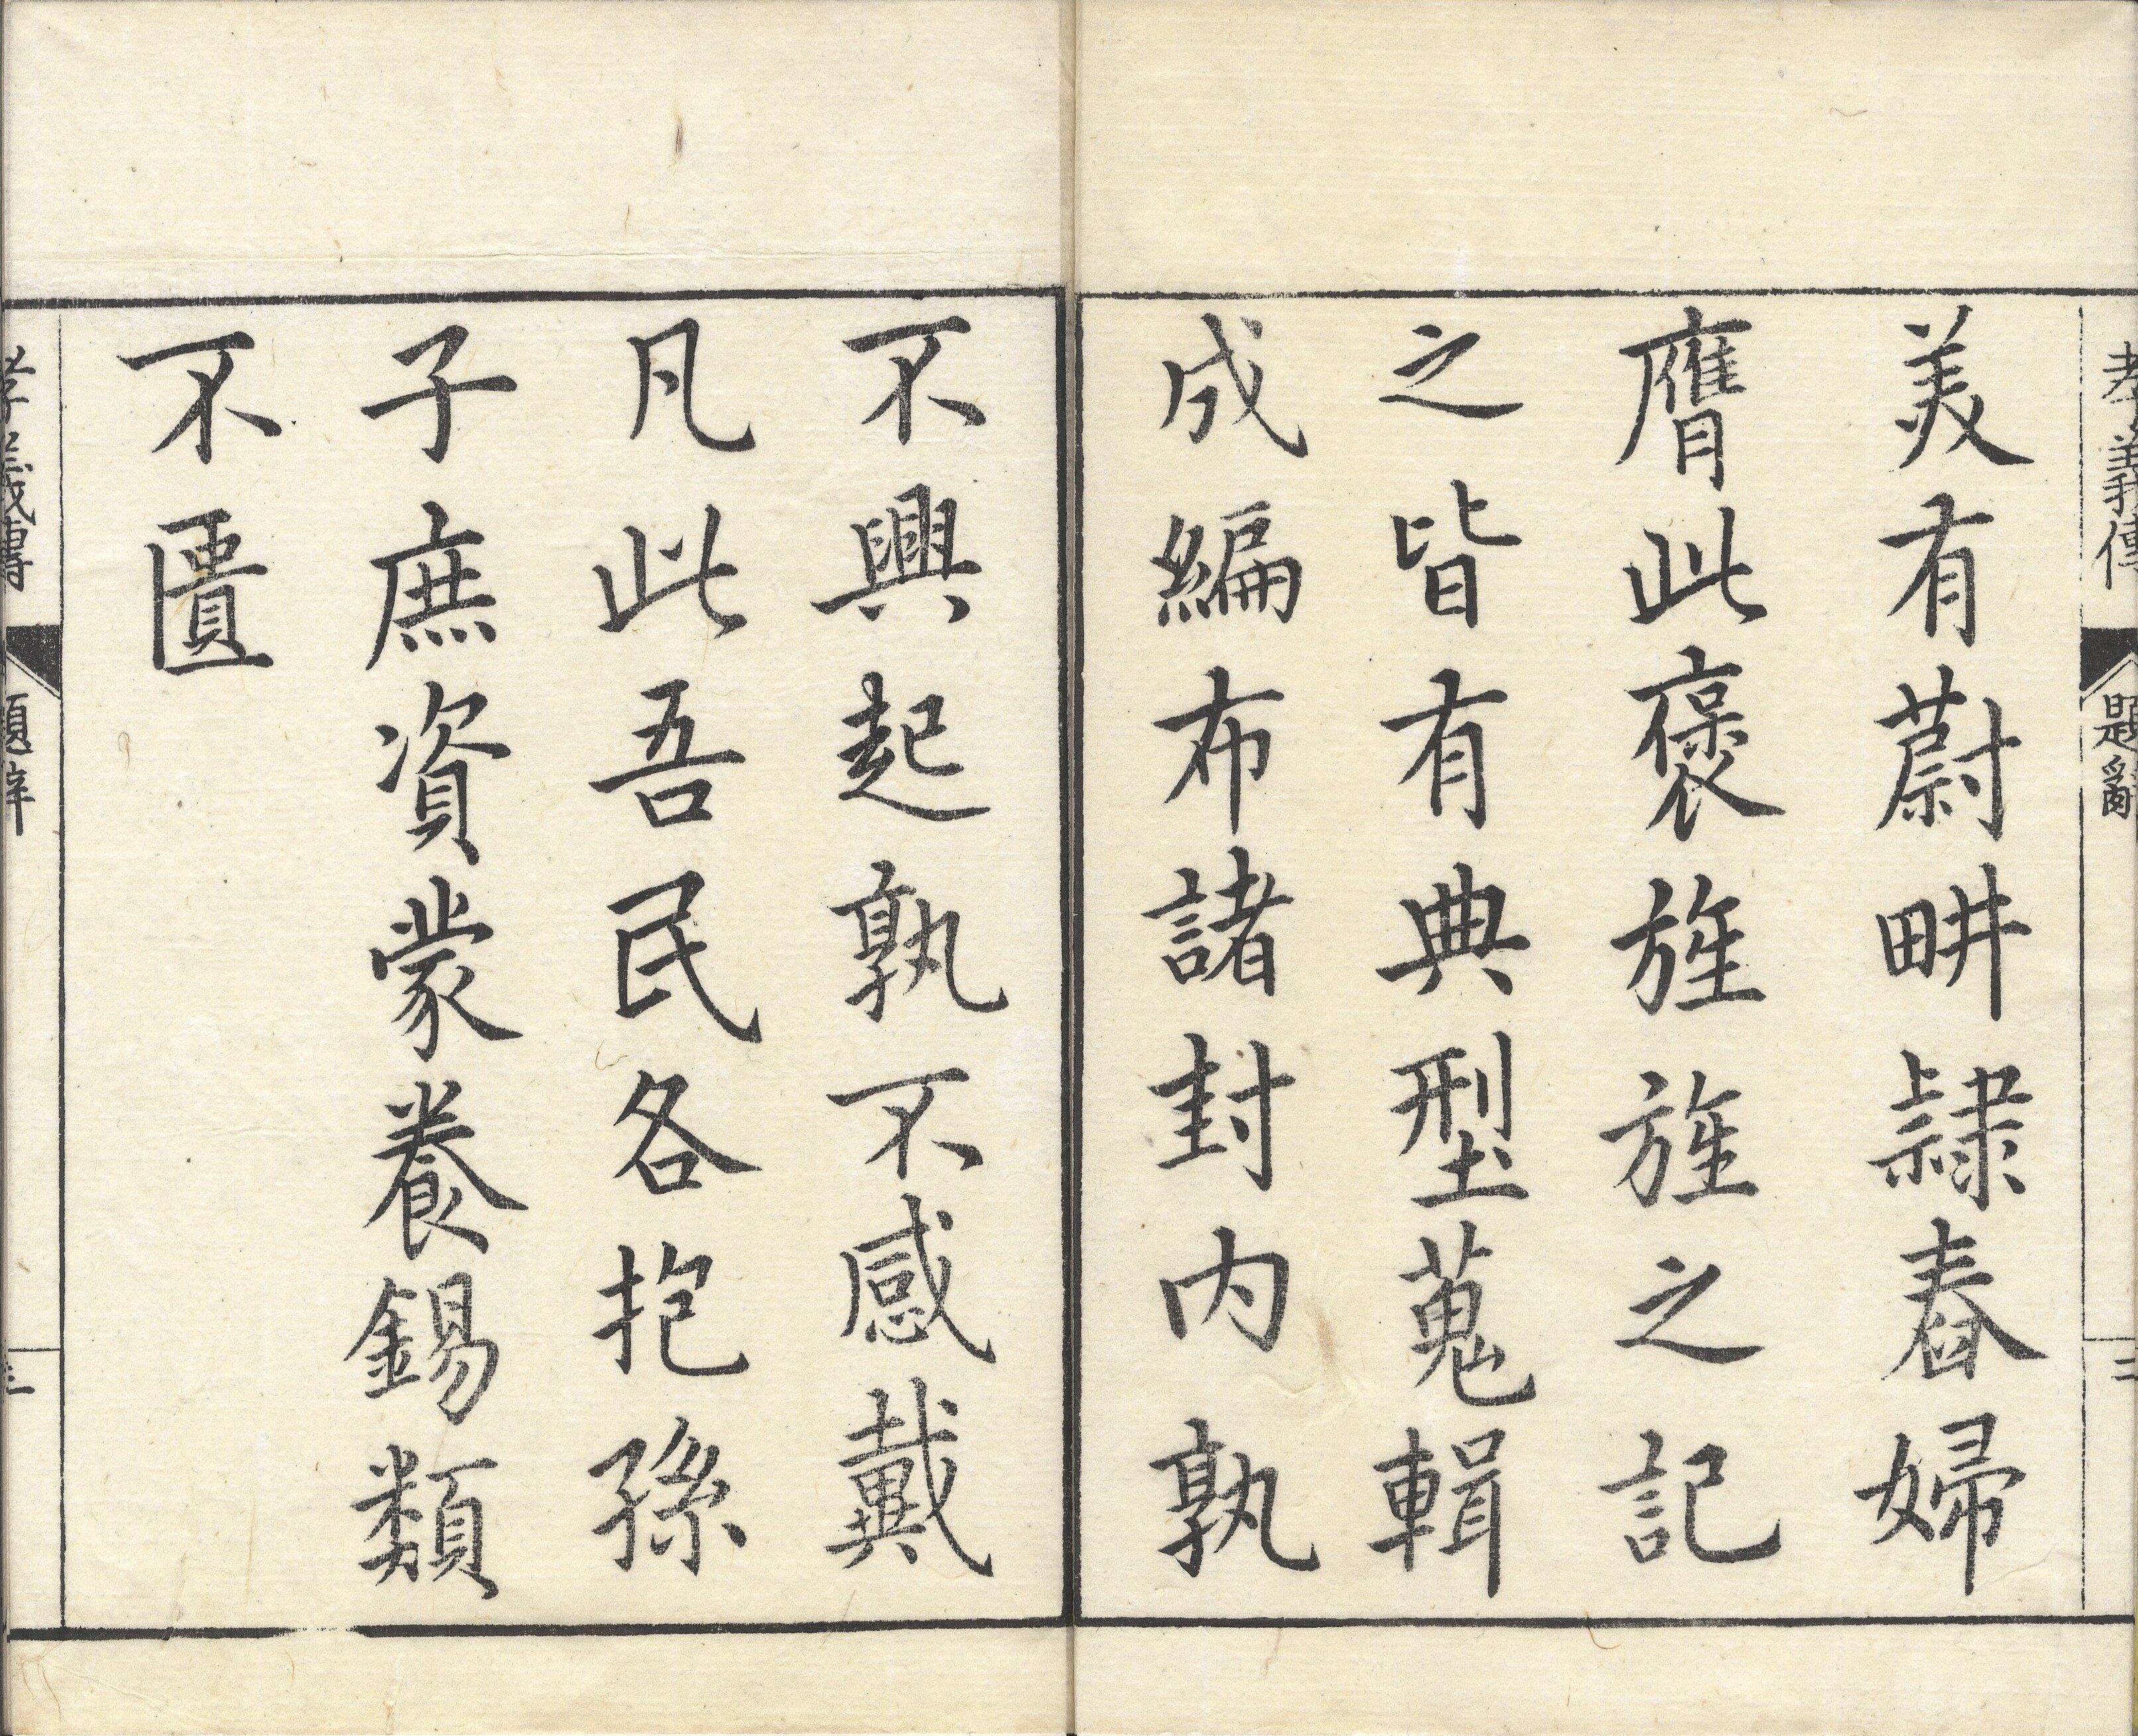 孝義傳
題辭
二
美有蔚畊隷舂婦
膺此褒旌旌之記
之皆有典型蒐輯
成編布諸封内孰
不興起孰不感戴
凡此吾民各抱孫
子庶資蒙養錫類
不匱
孝義傳
題辭
三